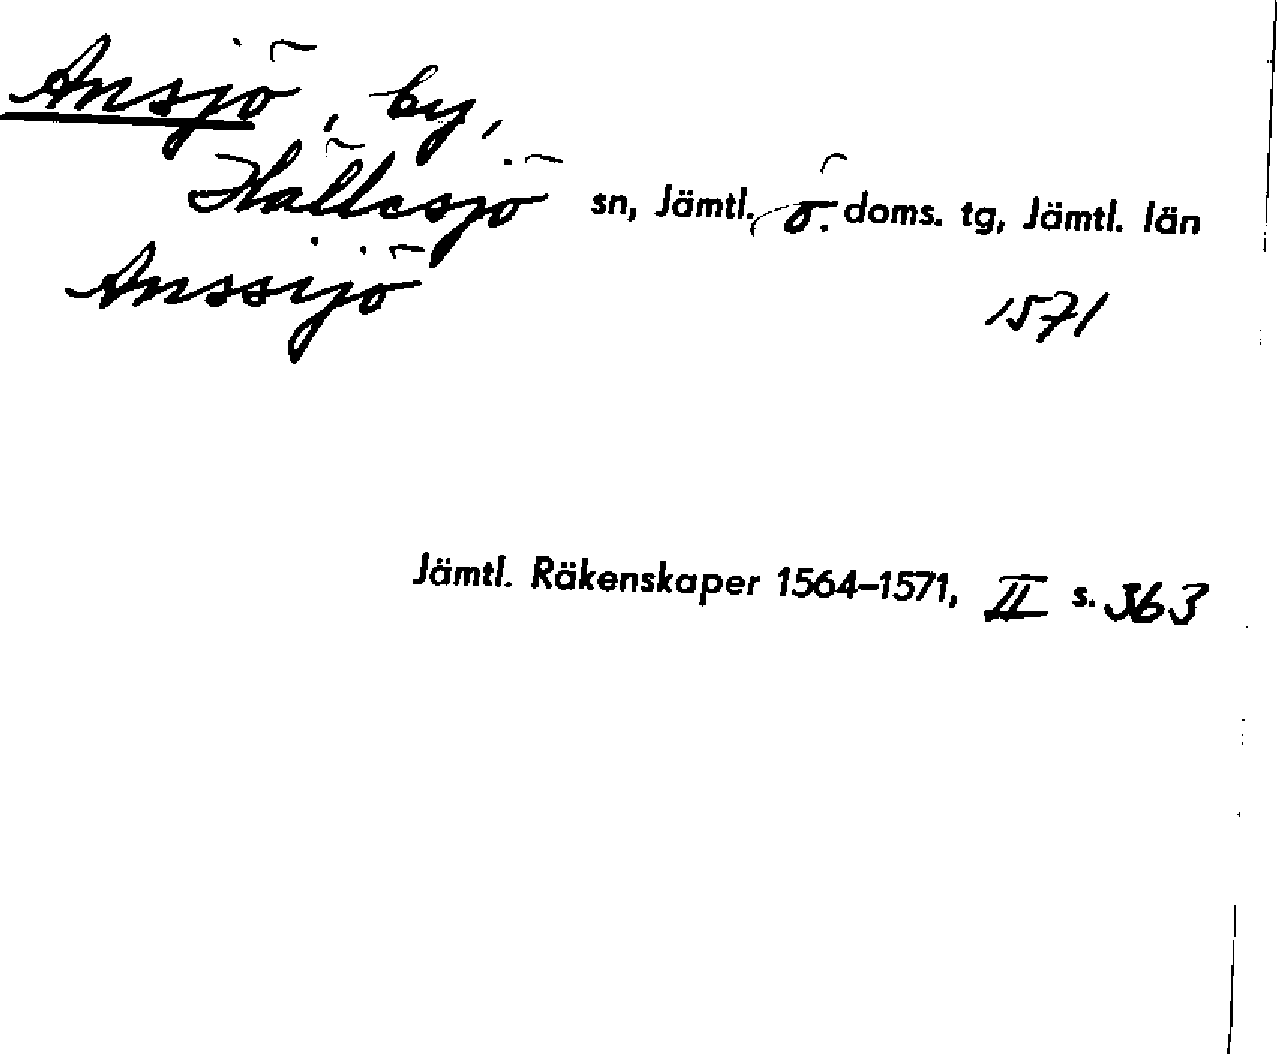 Ansjö, by,
Hällesjö sn, Jämtl. ö. doms. tg, Jämtl. län
Anssijö 1571
Jämtl. Räkenskaper 1564–1571, II s. 363